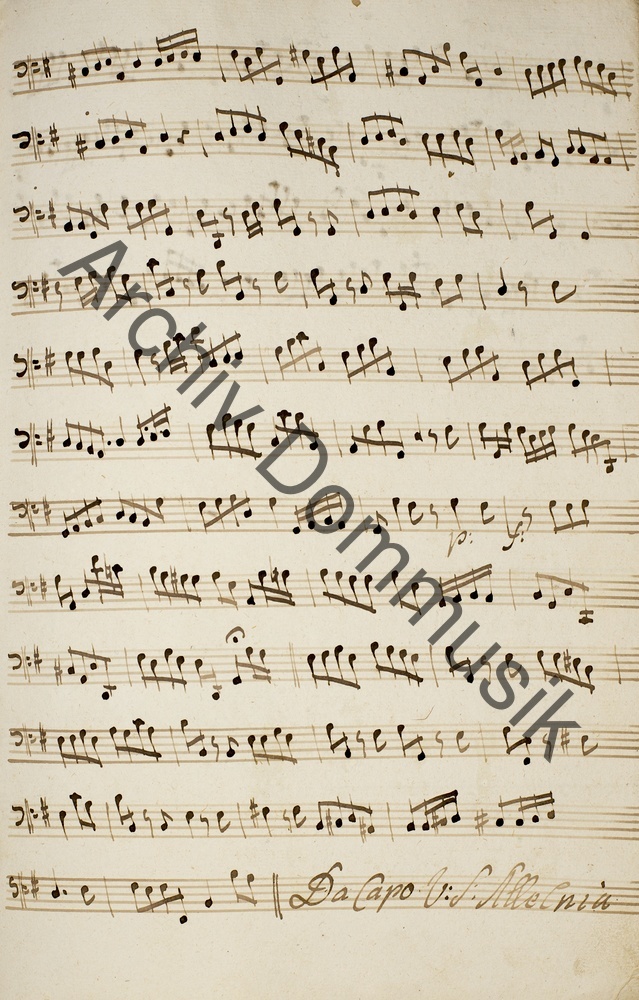 p: f:
Da Capo V: S: Allelnia
Archiv Dommusik